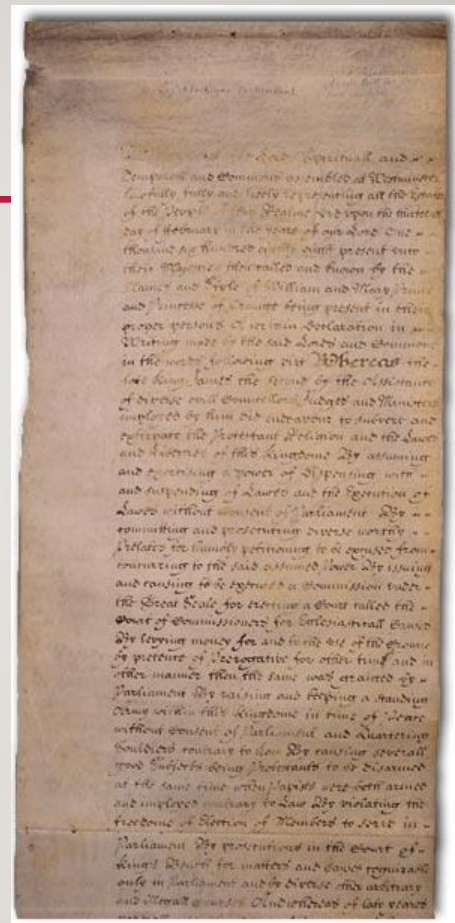 Lords Spirituall and
Temporall and Commons assembled at Westminster
lawfully fully and freely representing all the Estates
of the People of this Realme did upon the thirteenth
day of February in the yeare of our Lord One
thousand six hundred eighty eight present unto
their Majesties then called and known by the
Names and Style of William and Mary Prince
and Princesse of Orange being present in their
proper persons A certain Declaration in
Writing made by the said Lords and Commons
in the words following vizt Whereas the
late King James the second by the Assistance
of diverse evill Councellors Judges and Ministers
imployed by him did endeavour to subvert and
extirpate the Protestant Religion and the Lawes
and Liberties of this Kingdome By assuming
and exercising a power of Dispensing with
and suspending of Lawes and the Execution of
Lawes without Consent of Parliament By
committing and prosecuting diverse worthy
Prelates for humbly petitioning to be excused from
concurring to the said assumed Power By issuing
and causing to be executed a Commission under
the Great Seale for erecting a Court called the
Court of Commissioners for Ecclesiasticall Causes
By levying money for and to the use of the Crowne
by pretence of Prerogative for other time and in
other manner then the same was granted by
Parliament By raising and keeping a standing
Army within this Kingdome in time of Peace
without Consent of Parliament and Quartering
Souldiers contrary to Law By causing severall
good Subjects being Protestants to be disarmed
at the same time when Papists were both armed
and imployed contrary to Law By violating the
freedome of Election of Members to serve in
Parliament By prosecutions in the Court of
Kings Bench for matters and causes cognizable
only in Parliament and by diverse other arbitrary
and illegall courses And whereas of late yeares